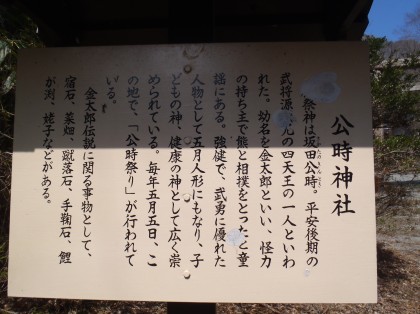 公時神社
祭神は坂田公時。平安後期の
武将源 光の四天王の一人といわ
れた。幼名を金太郎といい、怪力
の持ち主で熊と相撲をとったと童
謡にある。強健で、武勇に優れた
人物として五月人形にもなり、子
どもの神、健康の神として広く崇
められている。毎年五月五日、こ
の地で、「公時祭り」が行われて
いる。
金太郎伝説に関る事物として、
宿石、菜畑、蹴落石、手鞠石、鯉
が渕、姥子などがある。